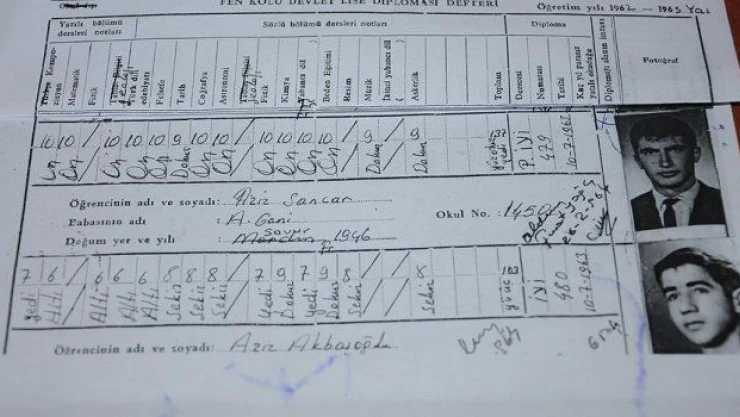 FEN KOLU DEVLET LİSE DİPLOMASI DEFTERİ
Öğretim yılı 1962 — 1963 Yaz
Yazılı bölümü dersleri notları
Sözlü bölümü dersleri notları
Diploma
Kompozisyon
Matematik
Fizik
Türk dili edebiyatı
Felsefe
Tarih
Coğrafya
Astronomi
Fizik
Kimya
Yabancı dil
Beden Eğitimi
Resim
Müzik
İkinci yabancı dil
Askerlik
Toplam
Derecesi
Numarası
Tarihi
Diplomayı alanın imzası
Fotoğraf
10 10 / 10 10 10 9 10 10 / 10 10 10 10 / 9 / 9 137 P. İYİ 479 10-7-1963
On On On On On Dokuz On On On On On On Dokuz Dokuz yüzotuz yedi
Öğrencinin adı ve soyadı: Aziz Sancar
Babasının adı : A. Gani
Okul No. : 1450
Savur
Doğum yer ve yılı : Mardin 1946
7 6 / 6 6 6 8 8 8 / 7 9 7 9 8 / / 8 103 İYİ 480 10-7-1963
Yedi Altı Altı Altı Altı Sekiz Sekiz Sekiz Yedi Dokuz Yedi Dokuz Sekiz Sekiz yüzüç
Öğrencinin adı ve soyadı: Aziz Akbaşoğlu